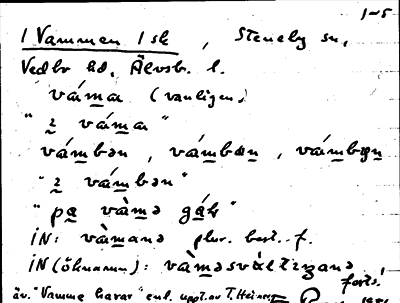 1-5
1 Vammen 1 sk, Steneby sn,
Vedbo hd, Älvsb. l.
váma (vanligen)
"i váma"
vámbən, vámbæn, vámbęn
"i vámbən"
"pa vàmə gák"
IN: vàmanə plur. best. f.
IN (öknamn): vàməsvàltizanə,
forts.
äv. "Vamme harar" enl. uppt. av T. Heine